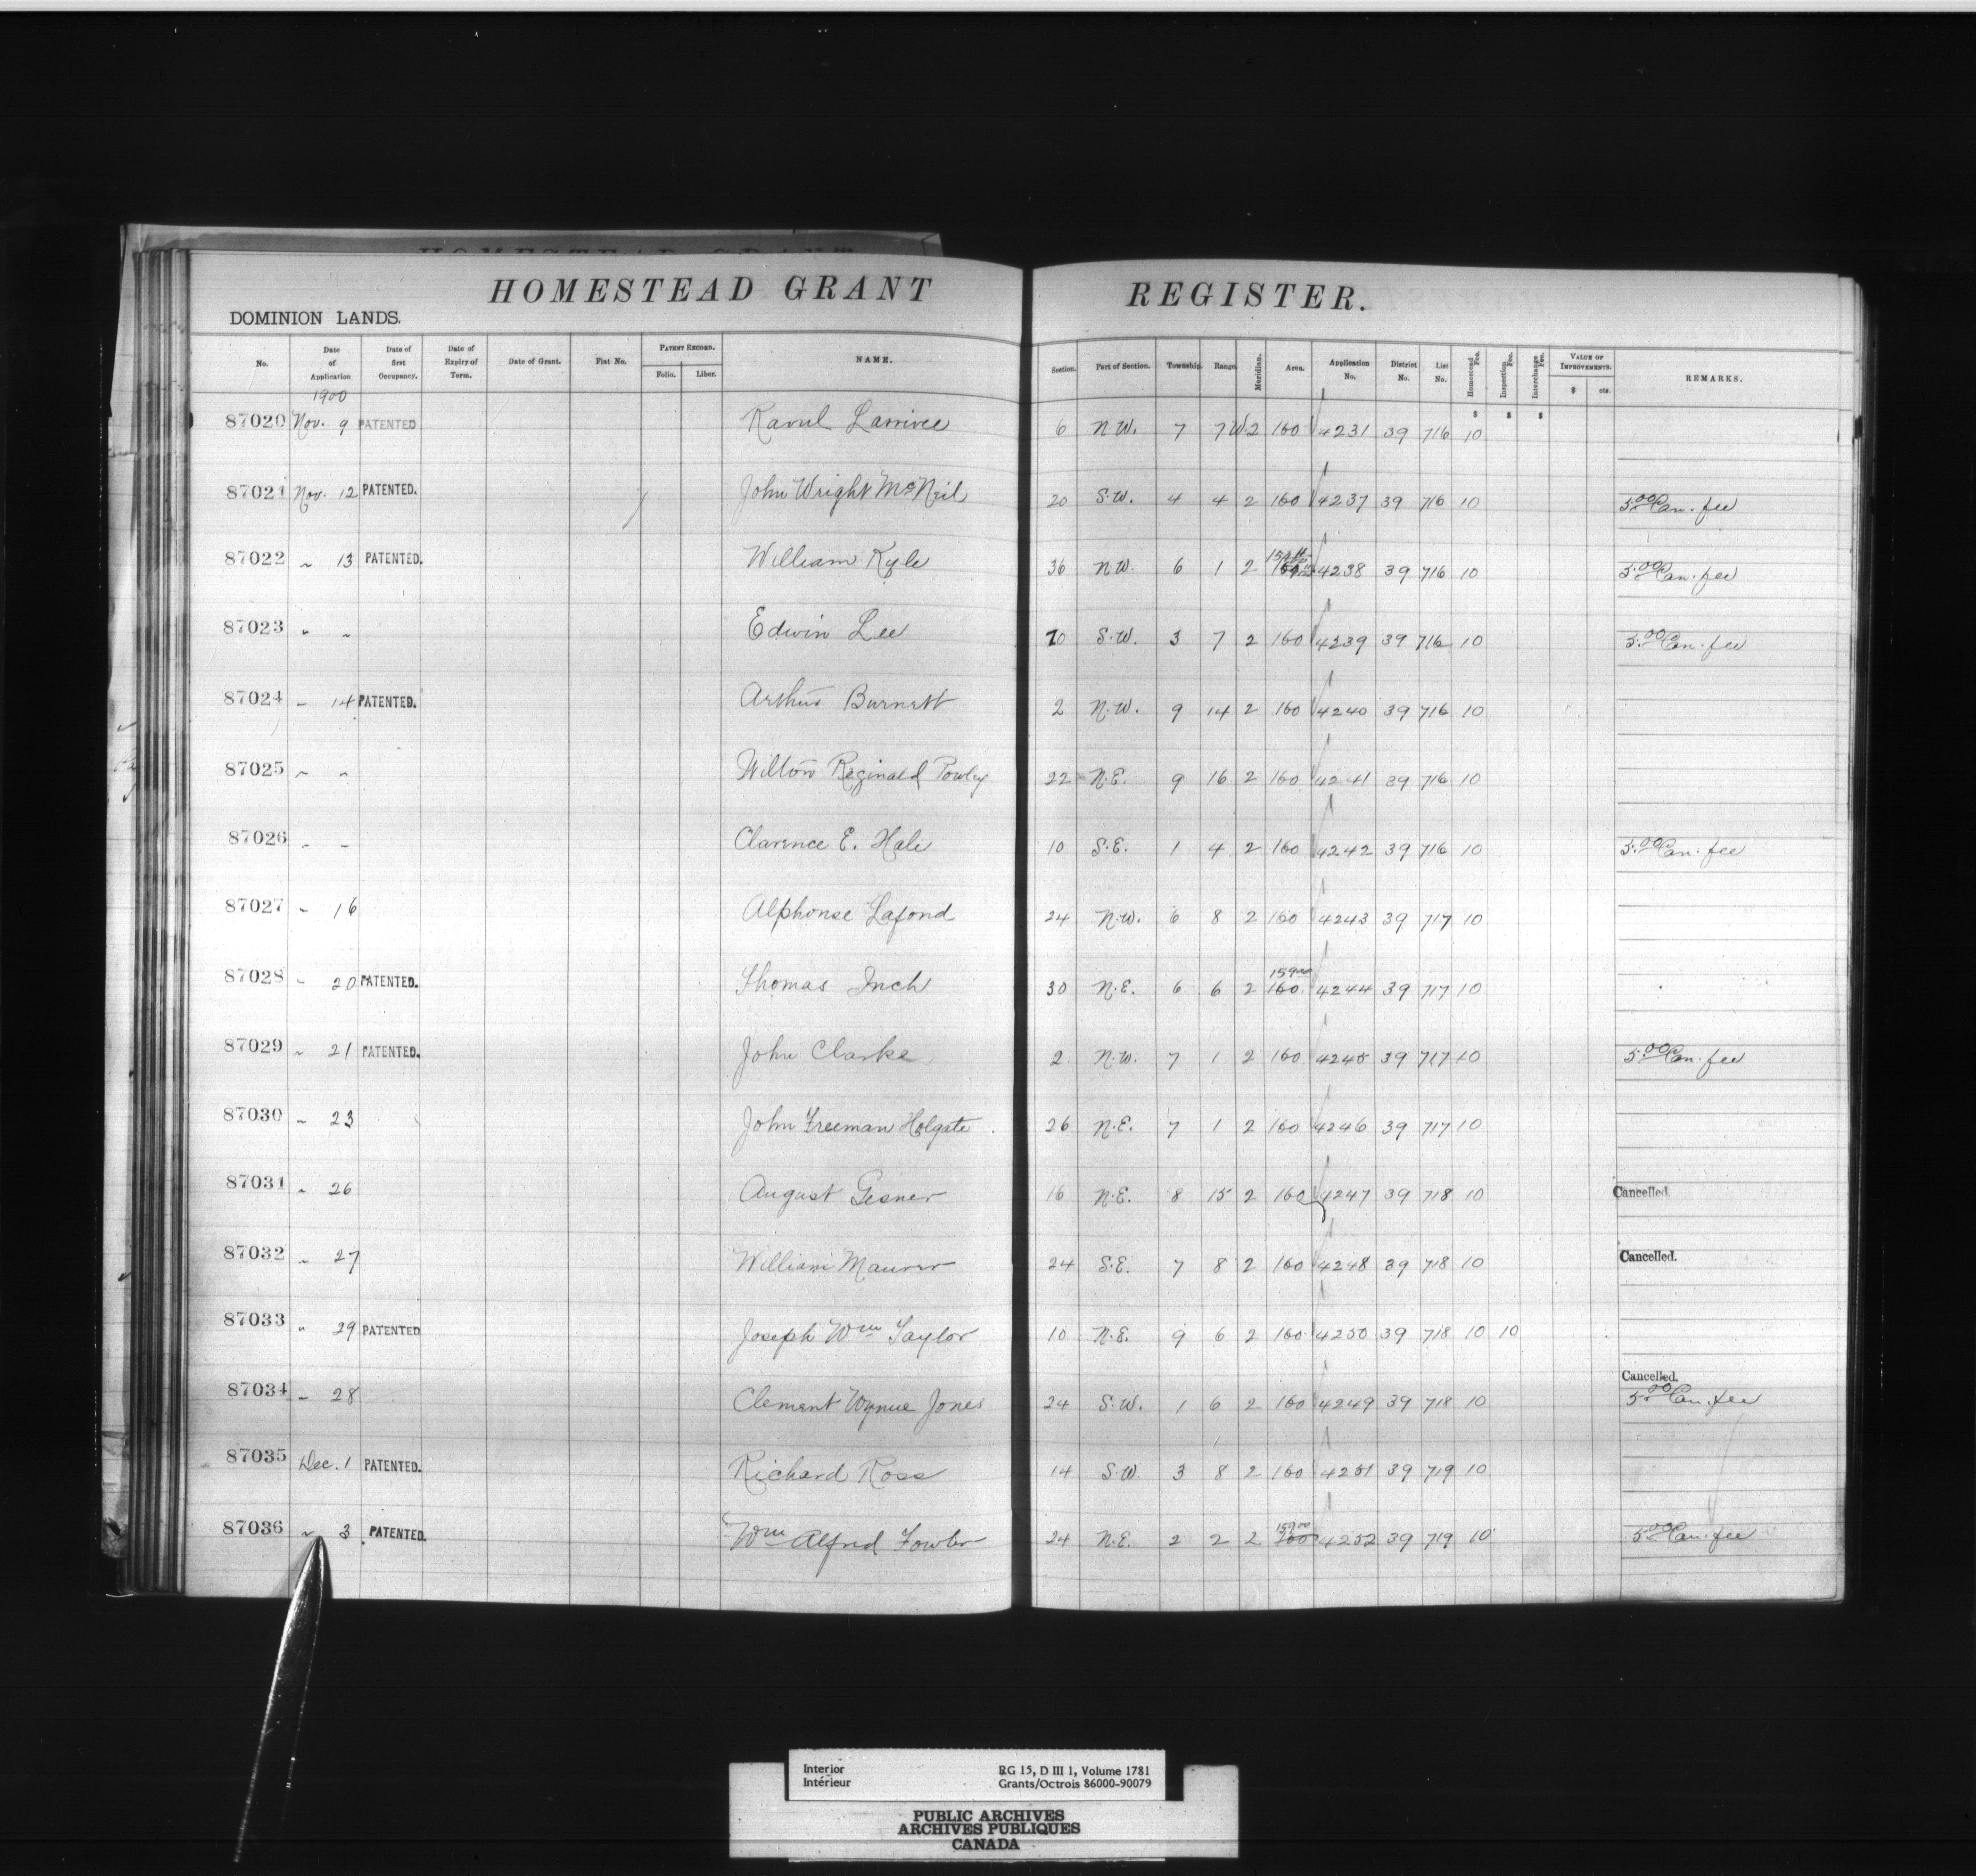 HOMESTEAD GRANT REGISTER.
DOMINION LANDS.
No. Date of Application Date of first Occupancy. Date of Expiry of Term. Date of Grant. Fiat No. PATENT RECORD. Folio. Liber. NAME. Section. Part of Section. Township. Range. Meridian. Area. Application No. District No. List No. Homestead Fee. Inspection Fee. Interchange Fee. VALUE OF IMPROVEMENTS. $ cts. REMARKS.
1900
$ $ $
87020 Nov. 9 PATENTED Raoul Larrivee 6 N.W. 7 7 W2 160 4231 39 716 10
87021 Nov. 12 PATENTED. John Wright McNeil 20 S.W. 4 4 2 160 4237 39 716 10 5.00 Can. fee
87022 " 13 PATENTED. William Kyle 36 N.W. 6 1 2 4238 39 716 10 5.00 Can. fee
87023 " " Edwin Lee S.W. 3 7 2 160 4239 39 716 10 5.00 Can. fee
87024 " 14 PATENTED. Arthur Burnett 2 N.W. 9 14 2 160 4240 39 716 10
87025 " " Wilton Reginald Powley 22 N.E. 9 16 2 160 4241 39 716 10
87026 " " Clarence E. Hale 10 S.E. 1 4 2 160 4242 39 716 10 5.00 Can. fee
87027 " 16 Alphonse Lafond 24 N.W. 6 8 2 160 4243 39 717 10
87028 " 20 PATENTED. Thomas Inch 30 N.E. 6 6 2 159.00 160 4244 39 717 10
87029 " 21 PATENTED. John Clarke 2 N.W. 7 1 2 160 4245 39 717 10 5.00 Can. fee
87030 " 23 John Freeman Holgate 26 N.E. 7 1 2 160 4246 39 717 10
87031 " 26 August Gesner 16 N.E. 8 15 2 160 4247 39 718 10 Cancelled.
87032 " 27 William Maurer 24 S.E. 7 8 2 160 4248 39 718 10 Cancelled.
87033 " 29 PATENTED Joseph Wm Taylor 10 N.E. 9 6 2 160 4250 39 718 10 10
87034 " 28 Clement Wynne Jones 24 S.W. 1 6 2 160 4249 39 718 10 Cancelled. 5.00 Can. fee
87035 Dec. 1 PATENTED. Richard Ross 14 S.W. 3 8 2 160 4251 39 719 10
87036 " 3 PATENTED. Wm Alfred Fowler 24 N.E. 2 2 2 159.00 160 4252 39 719 10 5.00 Can. fee
Interior RG 15, D III 1, Volume 1781
Intérieur Grants/Octrois 86000-90079
PUBLIC ARCHIVES
ARCHIVES PUBLIQUES
CANADA